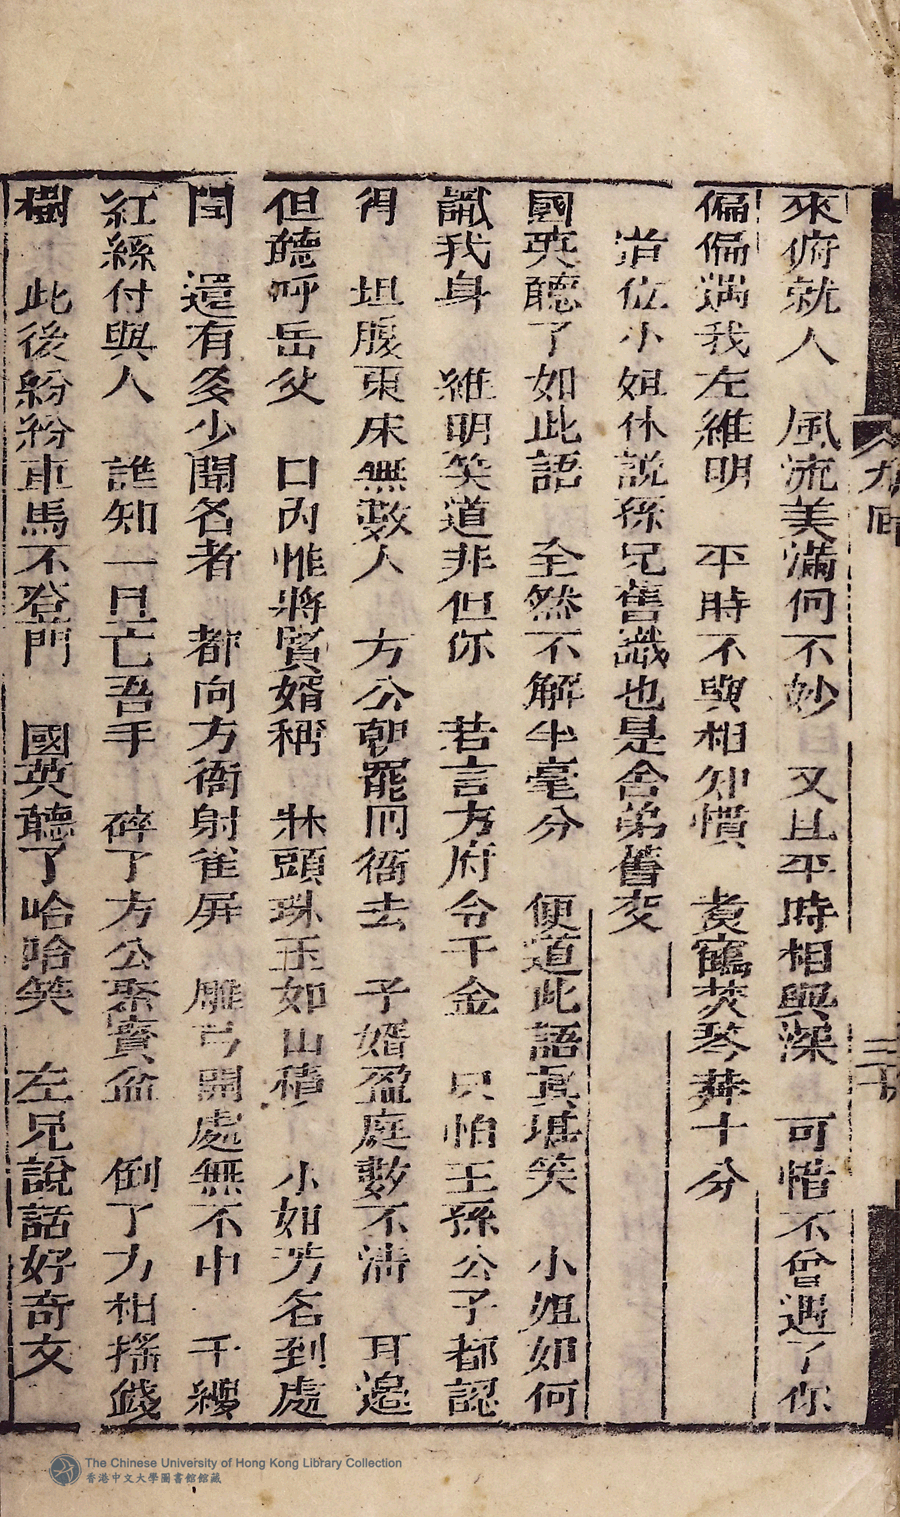 來俯就人　風流美滿何不妙　又且平時相與深　可惜不曾遇了你
偏偏遇我左維明　平時不與相知慣　煑鶴焚琴莽十分
道位小姐休説孫兄舊識也是舍弟舊交
國英聽了如此語　全然不解半毫分　便道此語真堪笑　小姐如何
識我身　維明笑道非但你　若言方府令千金　只怕王孫公子都認
得　坦腹東床無數人　方公朝罷囘衙去　子婿盈庭數不清　耳邉
但聽呼岳父　口內惟將賢婿稱　牀頭珠玉如山積　小姐芳名到處
聞　還有多少聞名者　都向方衙射雀屏　雕弓開處無不中　千縷
紅絲付與人　誰知一旦亡吾手　碎了方公聚寳盆　倒了方相搖錢
樹　此後紛紛車馬不登門　國英聽了哈哈笑　左兄說話好奇文
三十
The Chinese University of Hong Kong Library Collection
香港中文大學圖書館館藏